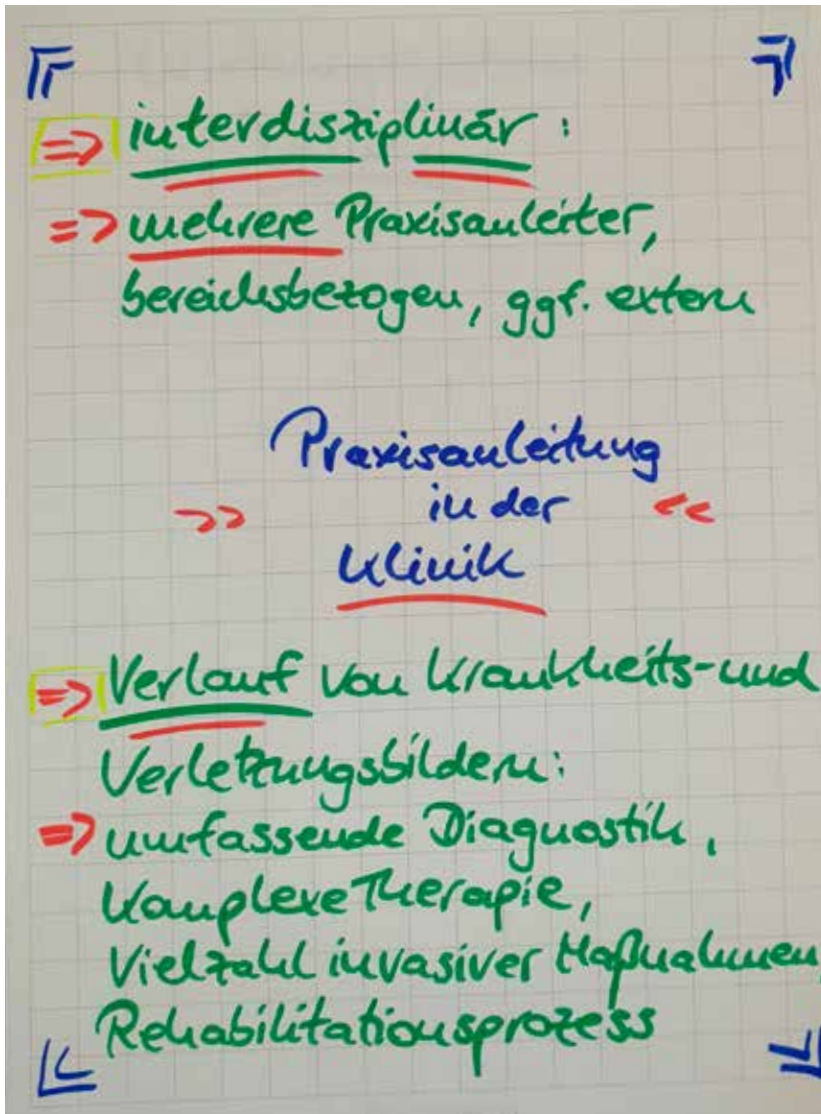 => interdisziplinär :
=> mehrere Praxisanleiter,
bereichsbezogen, ggf. extern
Praxisanleitung
>> in der <<
Klinik
=> Verlauf von Krankheits- und
Verletzungsbildern:
=> umfassende Diagnostik,
Komplexe Therapie,
Vielzahl invasiver Maßnahmen,
Rehabilitationsprozess